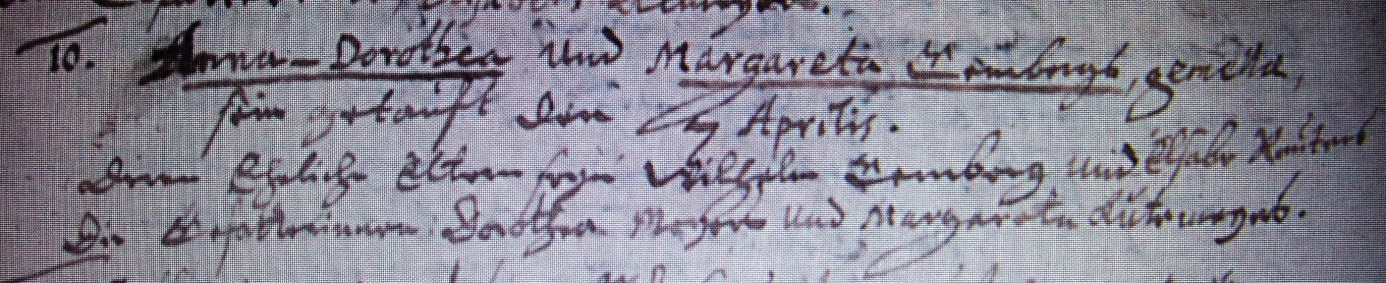 10. Anna-Dorothea und Margareta Eembergs, gemella,
sein getauft den Aprilis.
deren Eheliche Eltern seyn Wilhelm Eemberg und Elsabe Reuters
Die Gefatterinnen Dorothea Meyers und Margareta